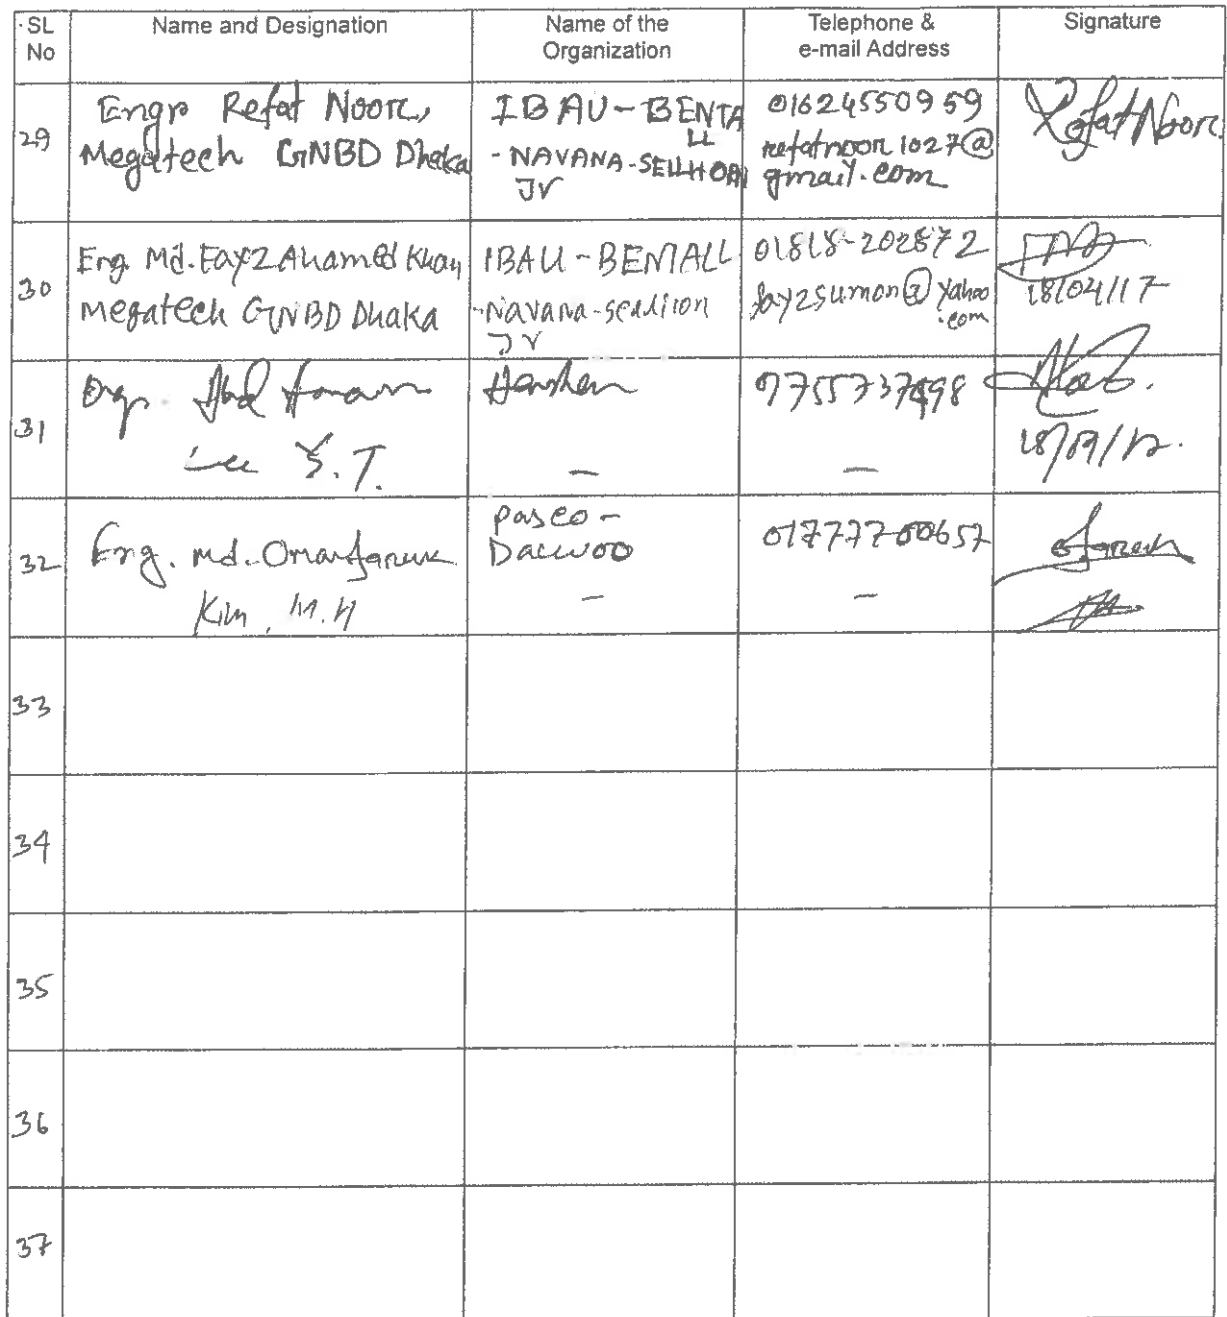 SL No
Name and Designation
Name of the Organization
Telephone & e-mail Address
Signature
29
Engr Refat Noor,
Megatech GNBD Dhaka
IBAU-BENTA
LL
-NAVANA-SELLHORN
JV
01624550959
refatnoor1027@
gmail.com
Refat Noor
30
Eng. Md. Fayz Ahamed Khan
Megatech GNBD Dhaka
IBAU-BENTALL
-Navana-sellhorn
JV
01818-202872
fayzsuman@yahoo
.com
18/04/17
31
Lee Y.T.
-
-
32
Eng. Md. Omar faruk
Kim, M.H
Pasco-
Daewoo
-
01777700657
-
33
34
35
36
37